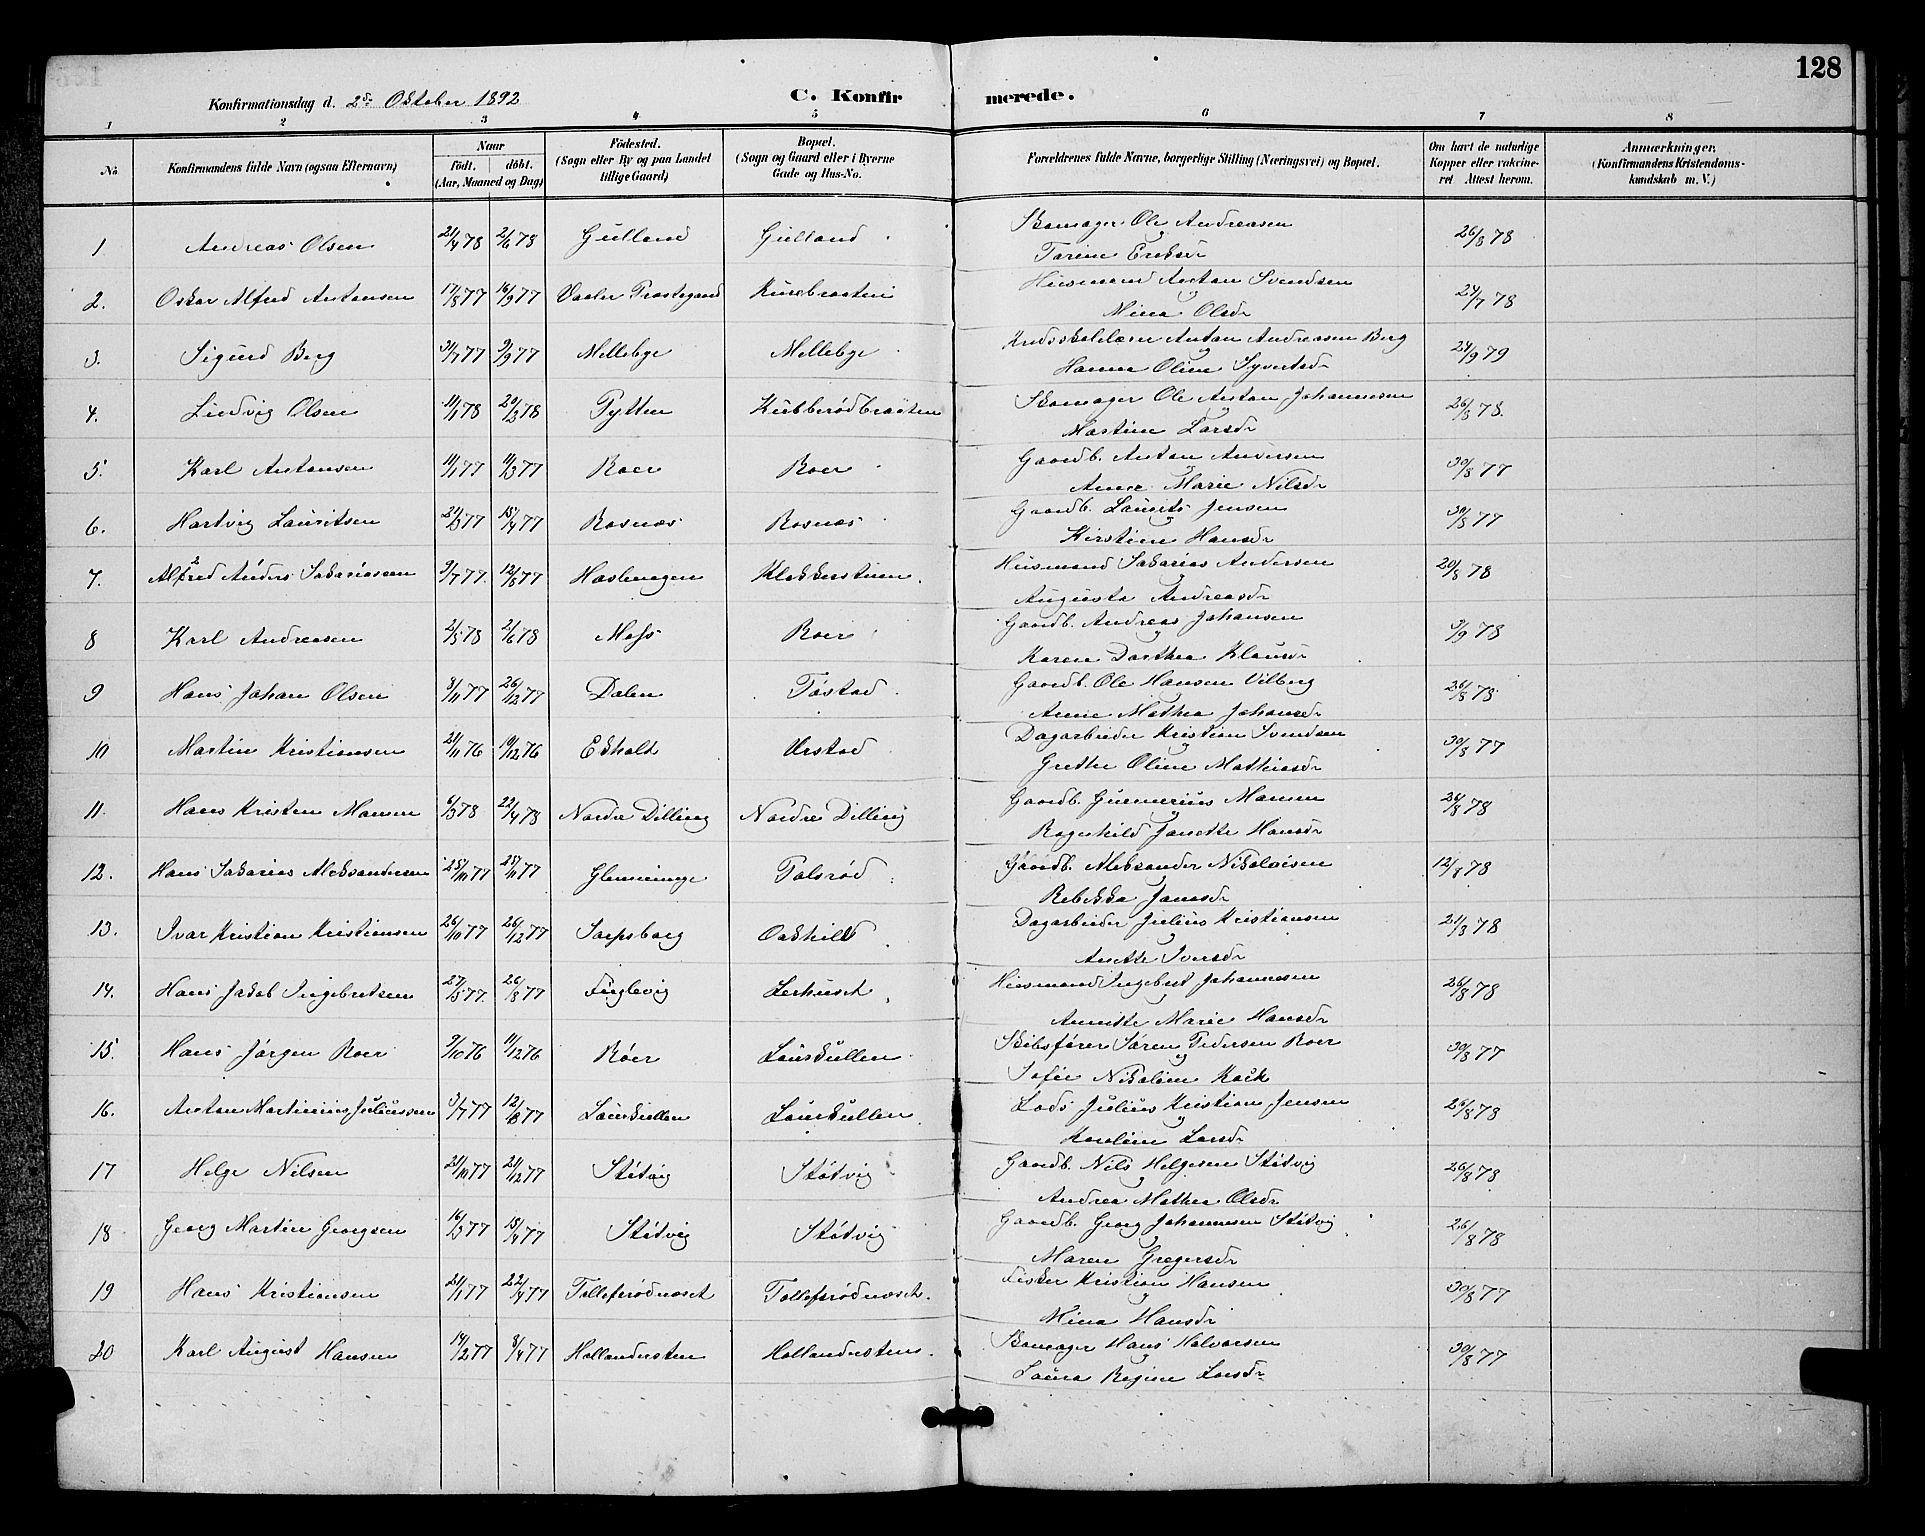 128
Konfirmationsdag d. 2den Oktober 1892
C. Konfirmerede.
1 2 3 4 5 6 7 8
No
Konfirmandens fulde Navn (ogsaa Efternavn)
Naar
födt. döbt.
(Aar, Maaned og Dag)
Födested.
(Sogn eller By og paa Landet
tillige Gaard)
Bopæl.
(Sogn og Gaard eller i Byerne
Gade og Hus-No.
Forældrenes fulde Navne, borgerlige Stilling (Næringsvei) og Bopæl.
Om havt de naturlige
Kopper eller vakcine-
ret Attest herom.
Anmærkninger,
(Konfirmandens Kristendoms-
kundskab m. V.)
1 Andreas Olsen 21/4 78 2/6 78 Gulland Gulland Skomager Ole Andreasen 26/8 78
Tarine Eriksdr
2. Oskar Alfred Antonsen 17/8 77 16/9 77 Vaaler Prestegaard Kurebraaten Husmand Anton Svendsen 24/7 78
Mina Olsdr
3. Sigurd Berg 31/7 77 9/9 77 Mellebye Mellebye Kredsskolelærer Anton Andreasen Berg 24/9 79
Hanna Oline Syvertsdr
4. Ludvig Olsen 11/1 78 20/3 78 Pytten Kubberødbraaten Skomager Ole Anton Johannesen 26/8 78
Mastine Larsdr
5. Karl Antonsen 11/1 77 11/3 77 Roer Roer Gaardb. Anton Andersen 30/8 77
Anne Marie Nilsdr
6. Hartvig Lauritsen 21/3 77 15/4 77 Rosnæs Rosnæs Gaardb. Laurits Jensen 30/8 77
Kirstine Hansdr
7. Alfred Anders Sakariasen 9/7 77 12/8 77 Haslemogen Klokkerstuen Husmand Sakarias Andersen 20/8 78
Augusta Andreasdr
8 Karl Andreasen 2/5 78 2/6 78 Moss Roer Gaardb. Andreas Johansen 9/9 78
Karen Dorthea Klausdr
9 Hans Johan Olsen 8/11 77 26/12 77 Dalen Tostad Gaardb. Ole Hansen Vilberg 26/8 78
Anne Mathea Johansdr
10 Martin Kristiansen 21/11 76 10/12 76 Ekholt Ørstad Dagarbeider Kristian Svendsen 30/8 77
Grethe Oline Mathiasdr
11. Hans Kristen Monsen 6/3 78 22/4 78 Nordre Dilling Nordre Dilling Gaardb. Gunnerius Monsen 26/8 78
Ragnhild Janette Hansdr
12. Hans Sakarias Aleksandersen 25/10 77 25/11 77 Glenninge Tolsrød Gaardb. Aleksander Nikolaisen 12/8 78
Rebekka Jonasdr
13. Ivar Kristian Kristiansen 26/10 77 26/12 77 Sarpsborg Oskild Dagarbeider Julius Kristiansen 21/3 78
Anette Iversdr
14. Hans Jakob Ingebretsen 27/5 77 26/8 77 Fuglevig Lerhuset Husmand Ingebret Johannesen 26/8 78
Annette Marie Hansdr
15. Hans Jørgen Roer 9/10 76 11/12 76 Røer Laurkullen Skibsfører Søren Pedersen Roer 30/8 77
Sofie Nikoline Kock
16. Anton Martinius Juliussen 3/7 77 12/8 77 Laurkullen Laurkullen Lods Julius Kristian Jensen 26/8 78
Karoline Larsdr
17 Helge Nilsen 21/10 77 21/12 77 Støtvig Støtvig Gaardb. Nils Helgesen Støtvig 26/8 78
Andrea Mathea Olsdr
18 Georg Martin Georgsen 16/3 77 15/4 77 Støtvig Støtvig Gaardb. Georg Johannesen Støtvig 26/8 78
Maren Gregersdr
19 Hans Kristiansen 21/1 77 22/4 77 Tollefsrødnæset Tollefsrødnæset Fisker Kristian Hansen 30/8 77
Mina Hansdr
20 Karl August Hansen 14/2 77 8/4 77 Hollendersten Hollendersten Skomager Hans Halvorsen 30/8 77
Laura Regine Larsdr